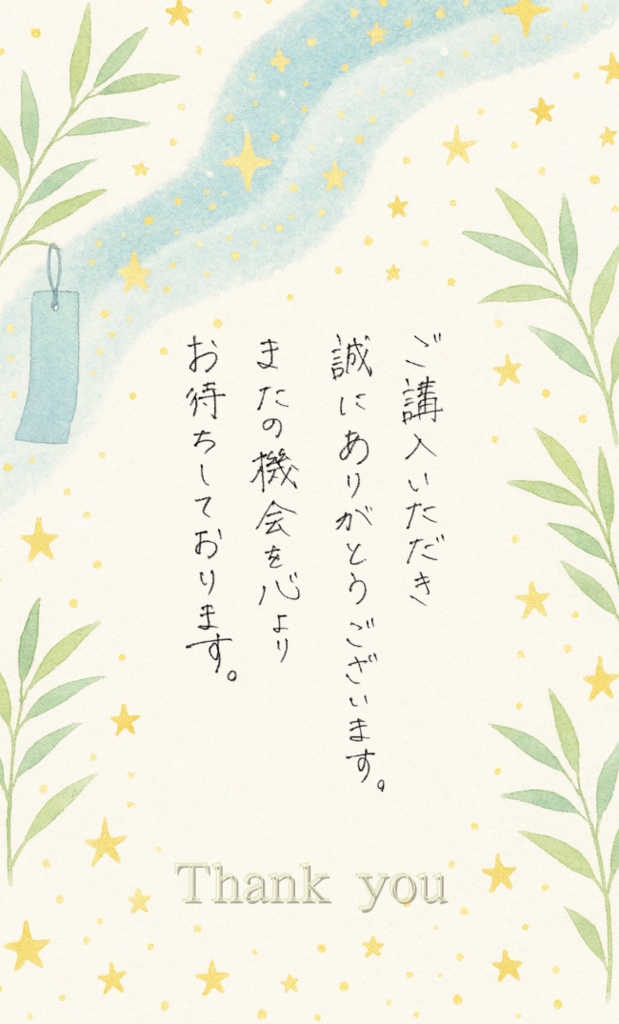 ご講入いただき
誠にありがとうございます。
またの機会を心より
お待ちしております。
Thank you